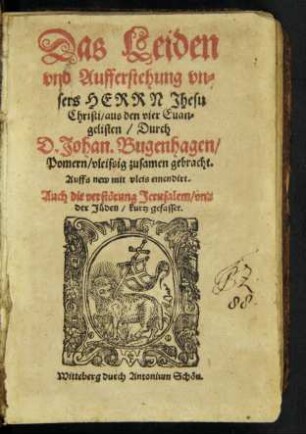 Das Leiden
vnd Aufferstehung vn-
sers HERRN Jhesu
Christi/aus den vier Euan-
gelisten / Durch
D. Johan. Bugenhagen/
Pomern/vleissig zusamen gebracht.
Auffs new mit vleis emendirt.
Auch die verstörung Jerusalem/vnd
der Jüden / kurtz gefasset.
Witteberg durch Antonium Schön.
88.